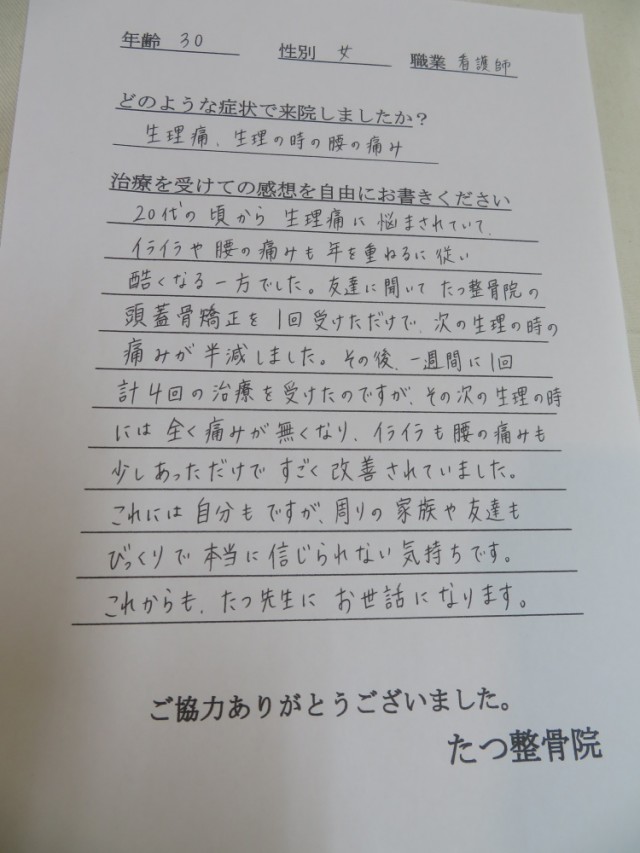 年齢 30 性別 女 職業 看護師
どのような症状で来院しましたか？
生理痛、生理の時の腰の痛み
治療を受けての感想を自由にお書きください
20代の頃から 生理痛に悩まされていて、
イライラや腰の痛みも年を重ねるに従い
酷くなる一方でした。友達に聞いて たつ整骨院の
頭蓋骨矯正を1回受けただけで、次の生理の時の
痛みが半減しました。その後、一週間に1回
計4回の治療を受けたのですが、その次の生理の時
には全く痛みが無くなり、イライラも腰の痛みも
少しあっただけで すごく改善されていました。
これには自分もですが、周りの家族や友達も
びっくりで本当に信じられない気持ちです。
これからも、たつ先生に お世話になります。
ご協力ありがとうございました。
たつ整骨院